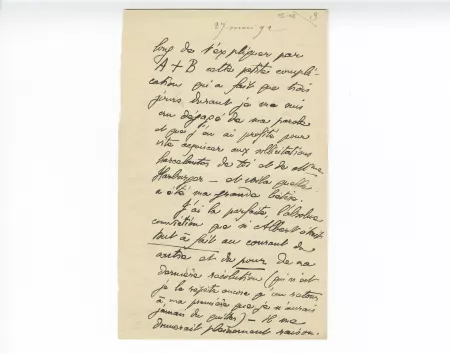 27 mai 92
long de t'expliquer par
A + B cette petite compli-
cation qui a fait que trois
jours durant je me suis
cru dégagé de ma parole
et que j'en ai profité pour
vite acquiescer aux sollicitations
harcelantes de toi et de Mme
Harburger — et voilà quelle
a été ma grande bêtise.
J'ai la parfaite, l'absolue
conviction que si Albert était
tout à fait au courant du
du pour de ma
dernière résolution (qui n'est
je le répète encore qu'un retour
à ma première que je n'aurais
jamais dû quitter) — Il me
donnerait pleinement raison.